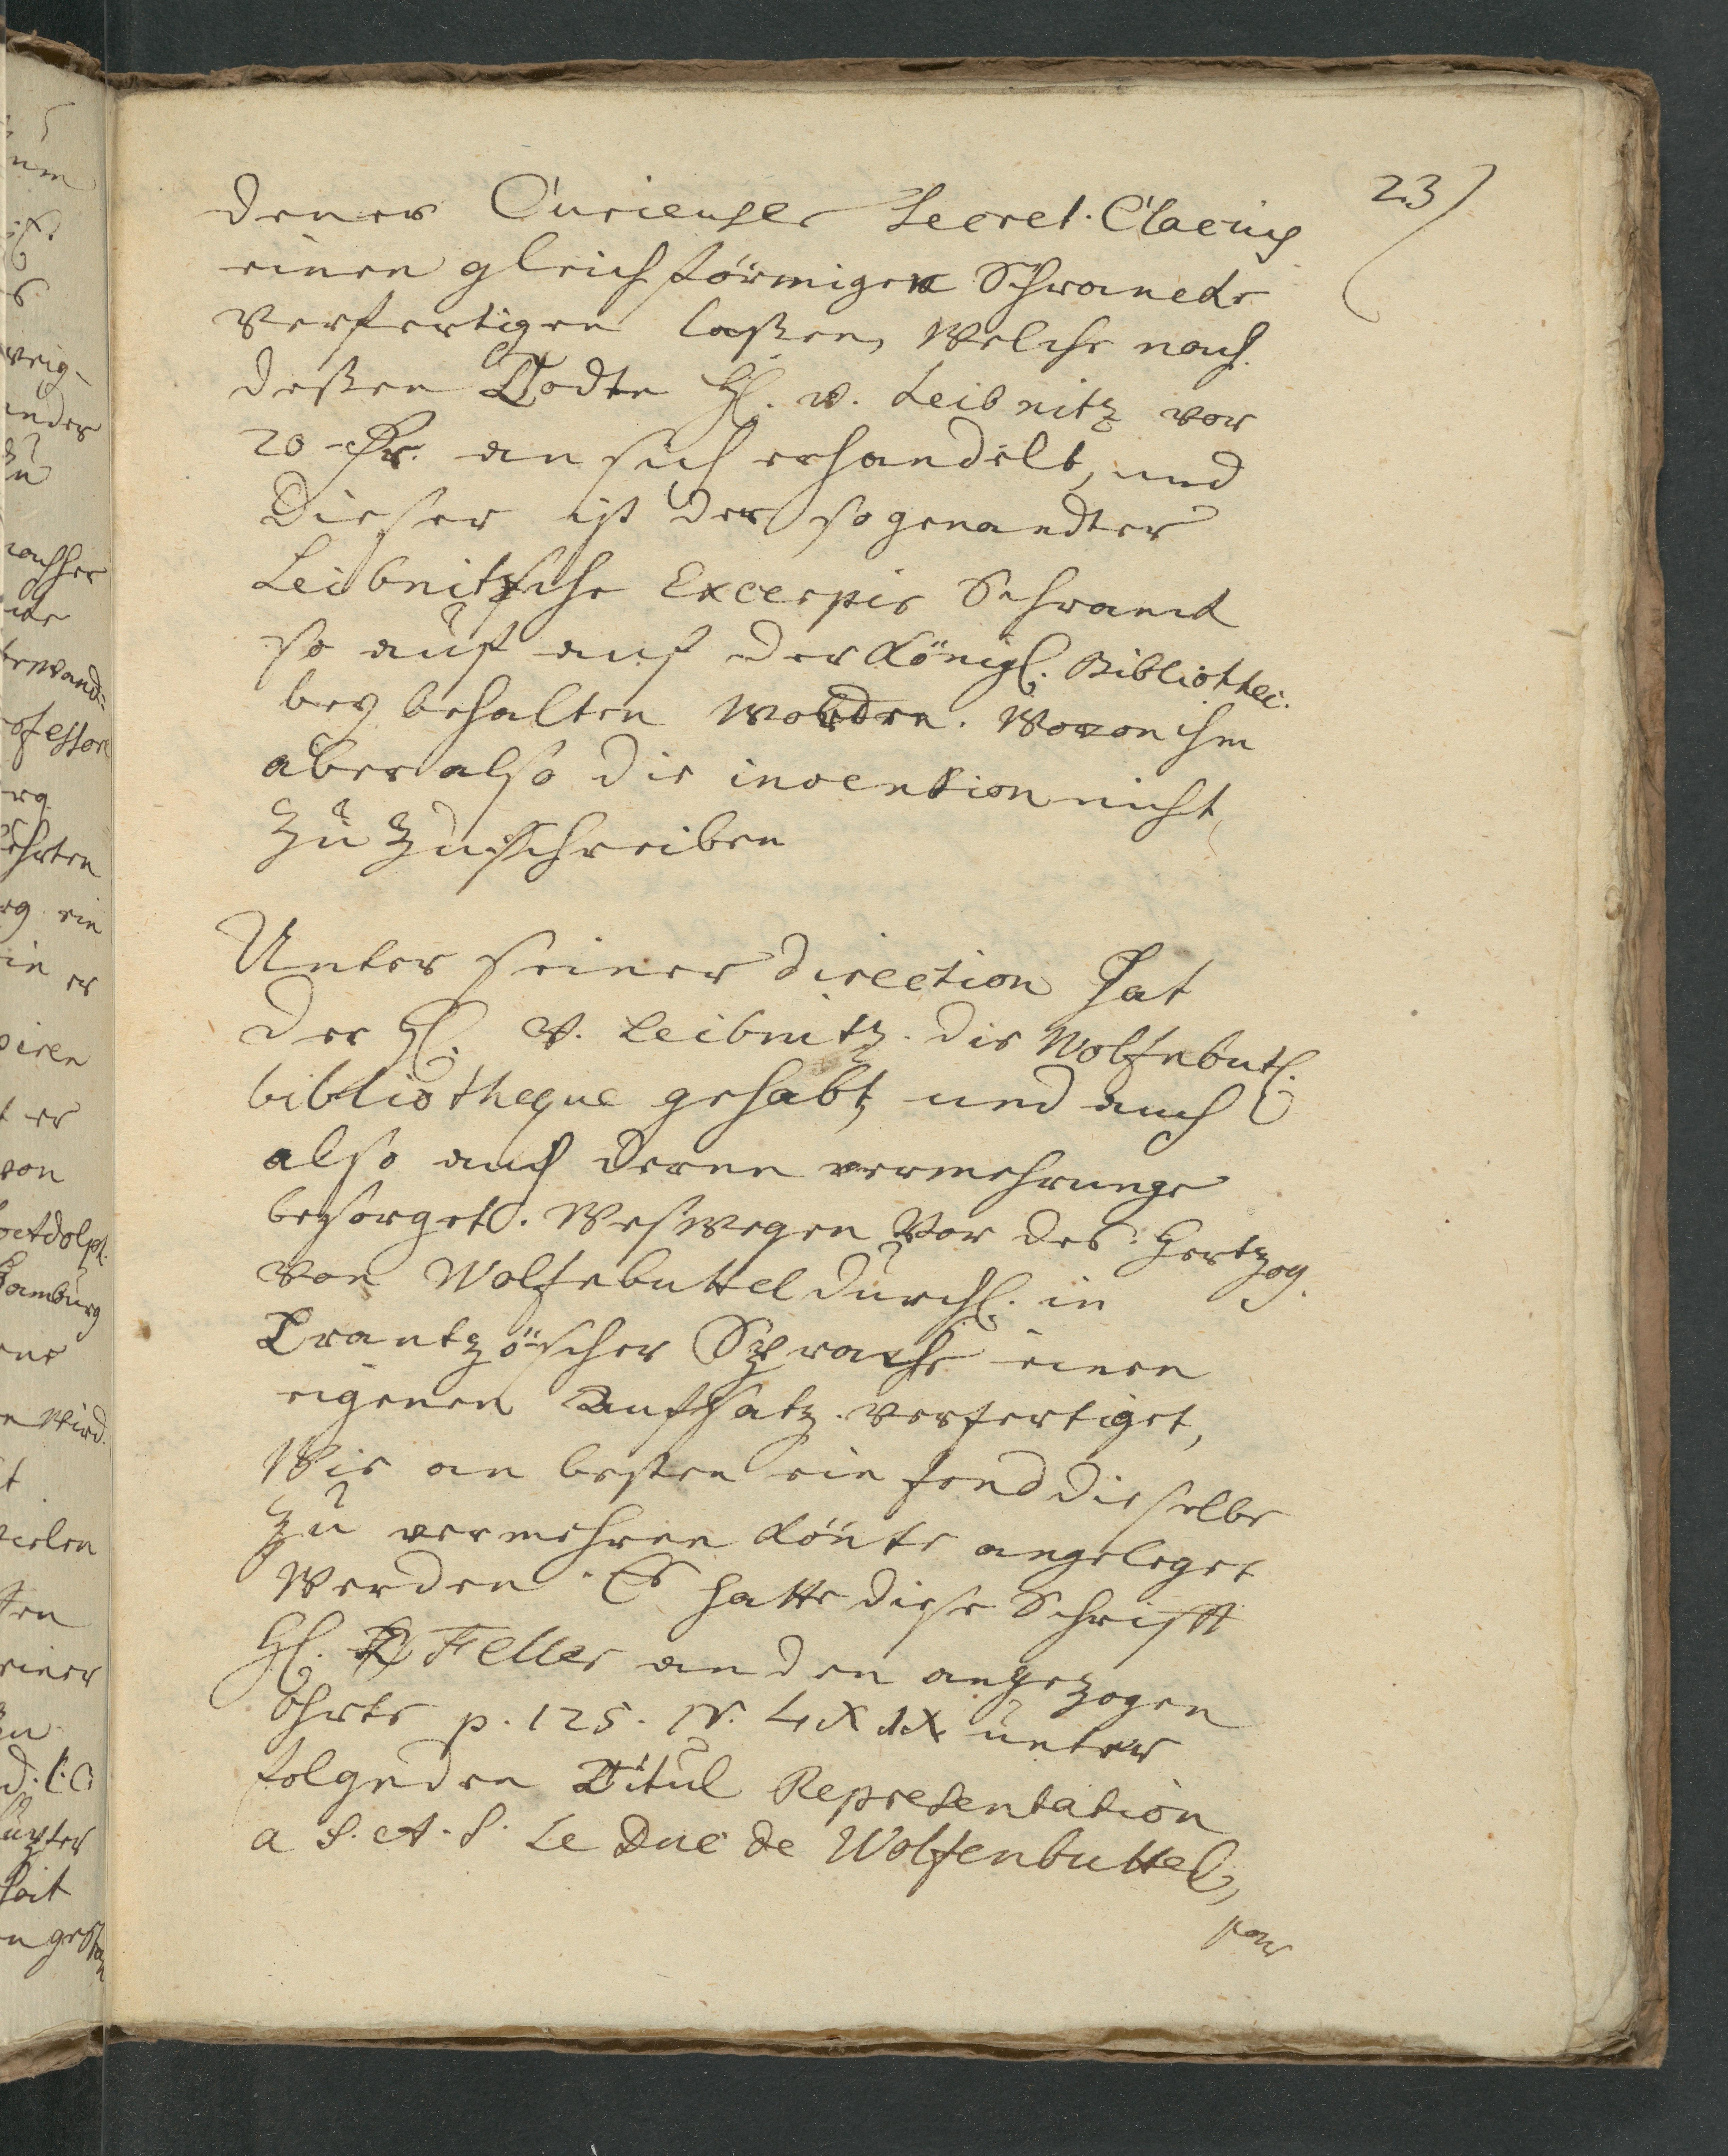 23)
dener Curieuser Secret. Clacius
einen gleichförmigen Schranck
verfertigen laßen, welche nach
deßen Todte H. v. Leibnitz vor
20 an sich erhandelt, und
Dieser ist der so genandter
Leibnitzsche Excerpir Schranck
so auf der Königl. Bibliothec.
bey behalten worden. Wovon ihm
aber also die invention nicht
zu zuschreiben
Unter seiner direction hat
der H. v. Leibnitz die Wolfebutl.
bibliotheque gehabt, und auch
also auch deren vermehrunge
besorget. Weswegen vor des Hertzog.
von Wolfebuttel Durchl. in
Frantzöscher Sprache einen
eigenen Aufsatz verfertiget,
Wie am besten ein fond dieselbe
zu vermehren könte angeleget
werden. Es hatte diese Schrifft
H. Feller an den angezogen
Ohrte p. 125. N. unter
folgenden Titul Representation
a S. A. S. Le Duc de Wolfenbuttel,
pour